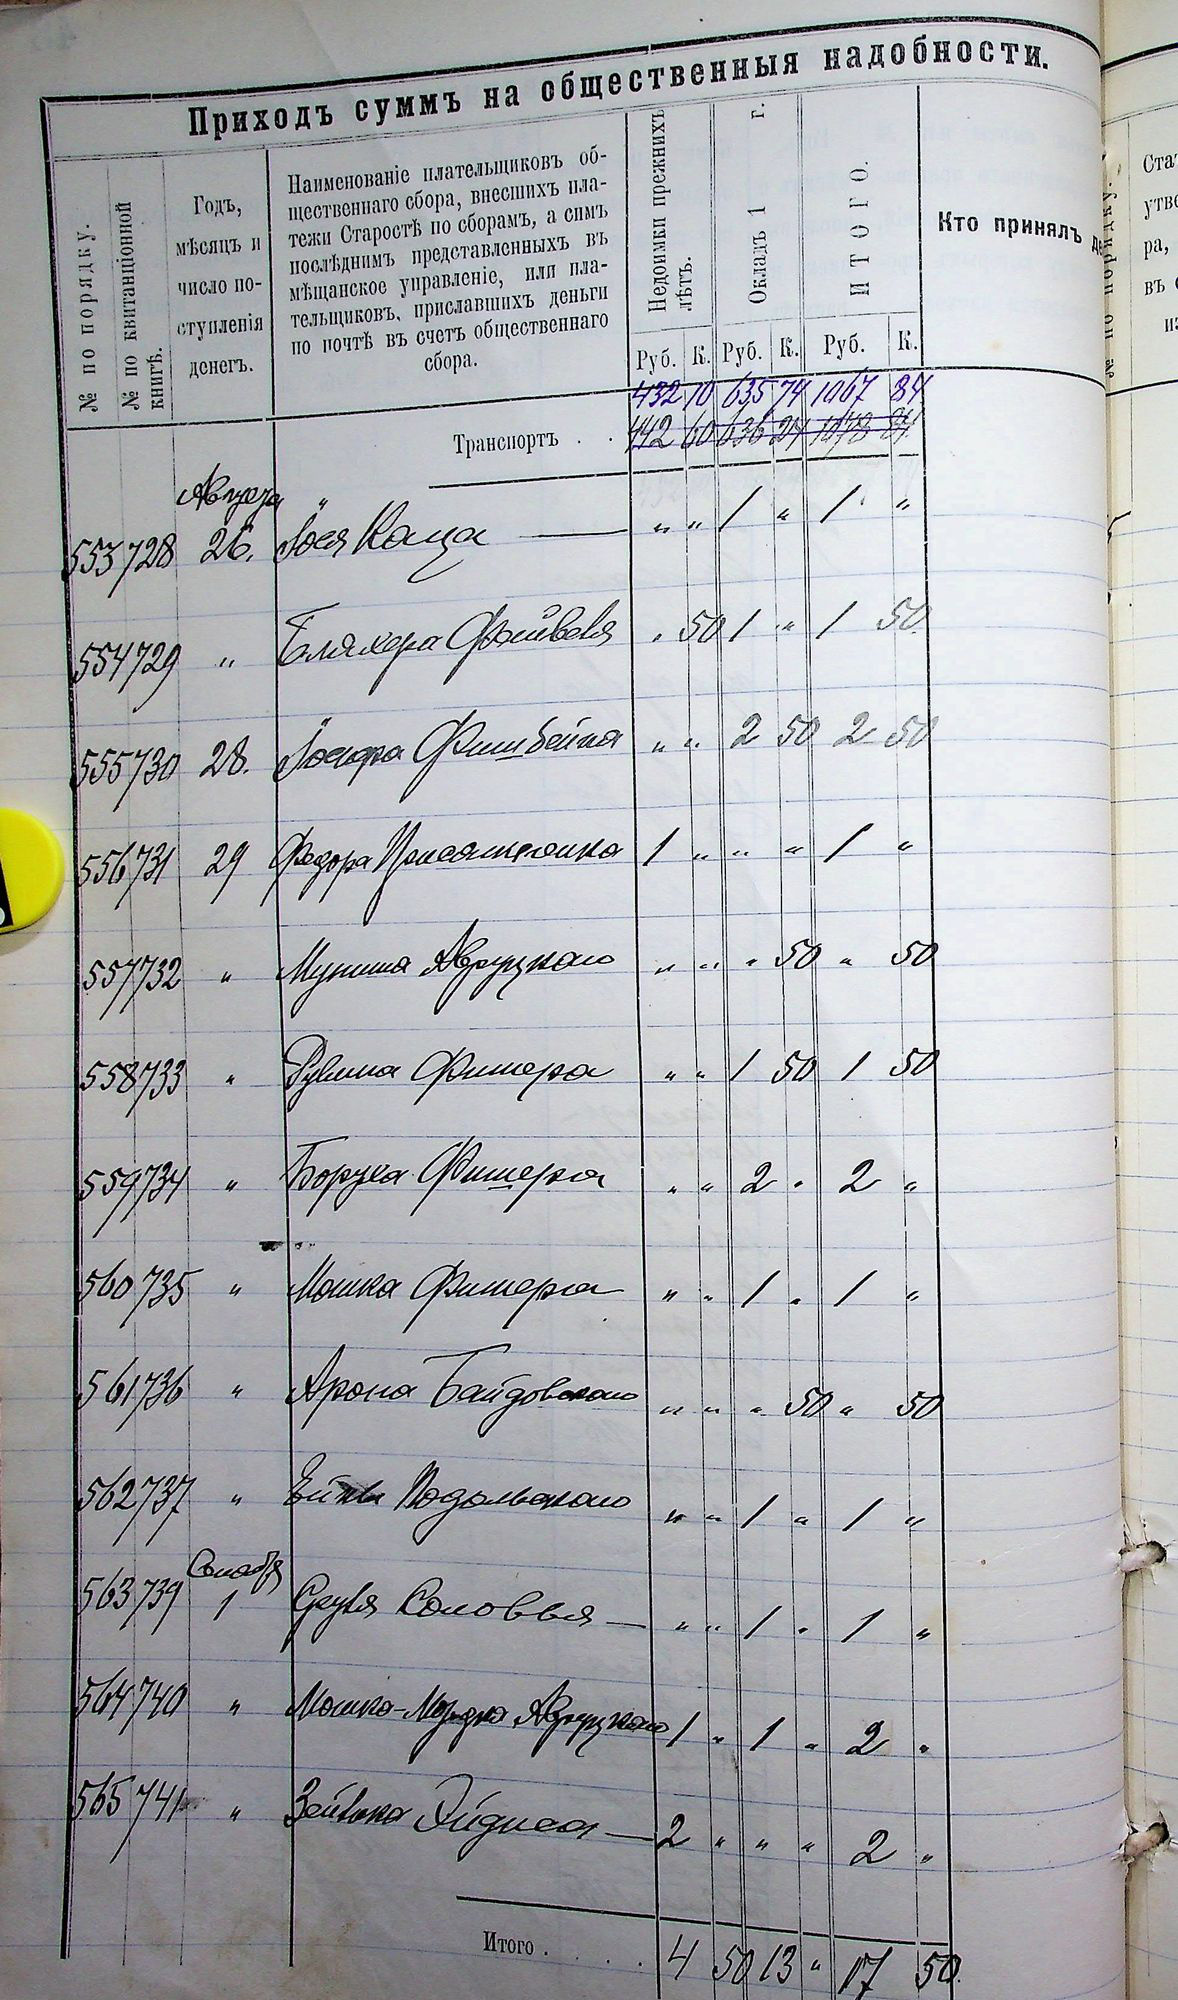 Приходъ суммъ на общественныя надобности.
№ по порядку.
№ по квитанціонной книгѣ.
Годъ,
мѣсяцъ и
число по-
ступленія
денегъ.
Наименованіе плательщиковъ об-
щественнаго сбора, внесшихъ пла-
тежи Старостѣ по сборамъ, а симъ
послѣднимъ представленныхъ въ
мѣщанское управленіе, или пла-
тельщиковъ, приславшихъ деньги
по почтѣ въ счетъ общественнаго
сбора.
Недоимки прежнихъ лѣтъ.
Окладъ 1 г.
ИТОГО.
Кто принялъ де
Руб. К. Руб. К. Руб. К.
432 10 635 74 1067 84
Транспортъ . . 442 60 636 24 1078 84
Августа
553 728 26. Іося Каца — „ „ 1 „ 1 „
554 729 „ Бляхера Файвеля „ 50 1 „ 1 50
555 730 28. Іосифа Фишбейна „ „ 2 50 2 50
556 731 29 Федора 1 „ „ „ 1 „
557 732 „ Авруцкаго „ „ „ 50 „ 50
558 733 „ Рувина Фишера „ „ 1 50 1 50
559 734 „ Боруха Фишера „ „ 2 „ 2 „
560 735 „ Мошка Фишера „ „ 1 „ 1 „
561 736 „ Арона Байдовскаго „ „ „ 50 „ 50
562 737 „ Подольскаго „ „ 1 „ 1 „
Сентября
563 739 1 Сруля Соловья — „ „ 1 „ 1 „
564 740 „ Мошка-Мордка Авруцкаго 1 „ 1 „ 2 „
565 741 „ Зейлика — 2 „ „ „ 2 „
Итого . . . . 4 50 13 „ 17 50
№ по порядку.
Ста
утве
ра,
въ
из